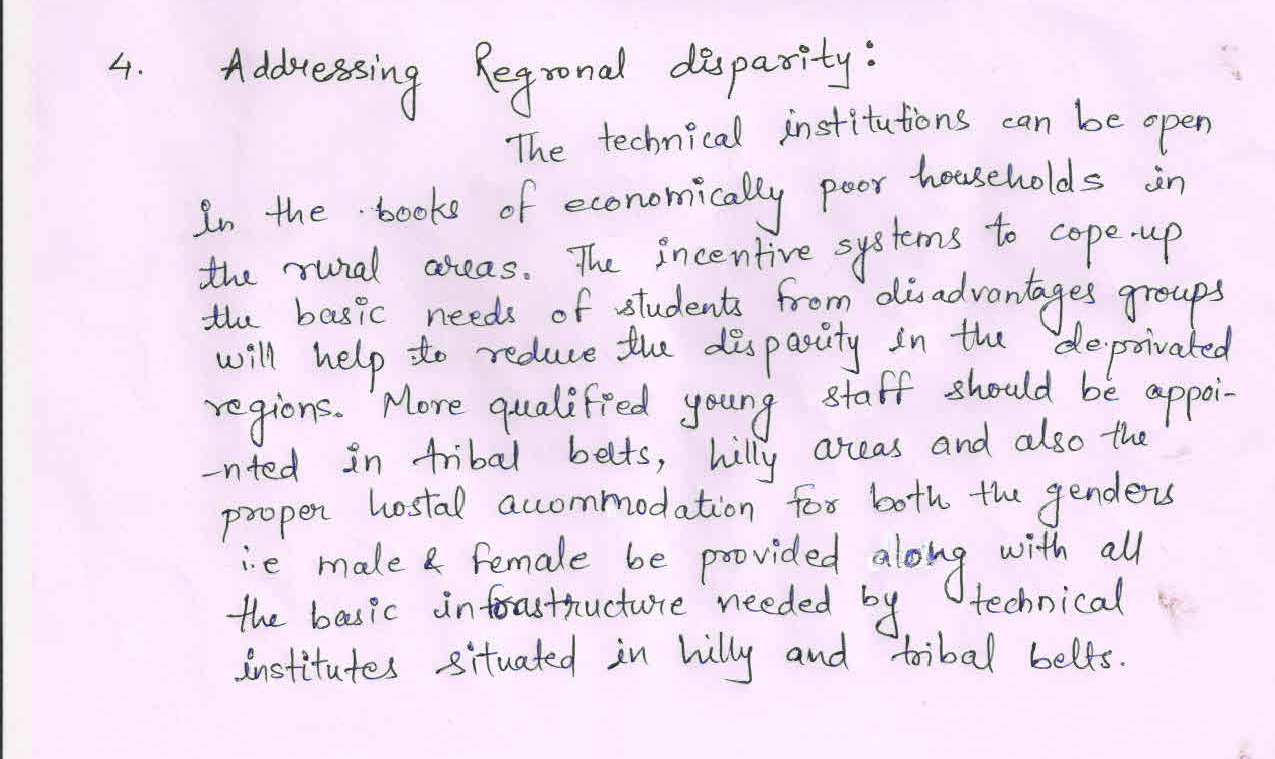 4. Addressing Regional disparity:
The technical institutions can be open
in the books of economically poor households in
the rural areas. The incentive systems to cope-up
the basic needs of students from disadvantages groups
will help to reduce the disparity in the deprivated
regions. More qualified young staff should be appoi-
-nted in tribal belts, hilly areas and also the
proper hostal accommodation for both the genders
i.e male & female be provided along with all
the basic infrastructure needed by technical
institutes situated in hilly and tribal belts.